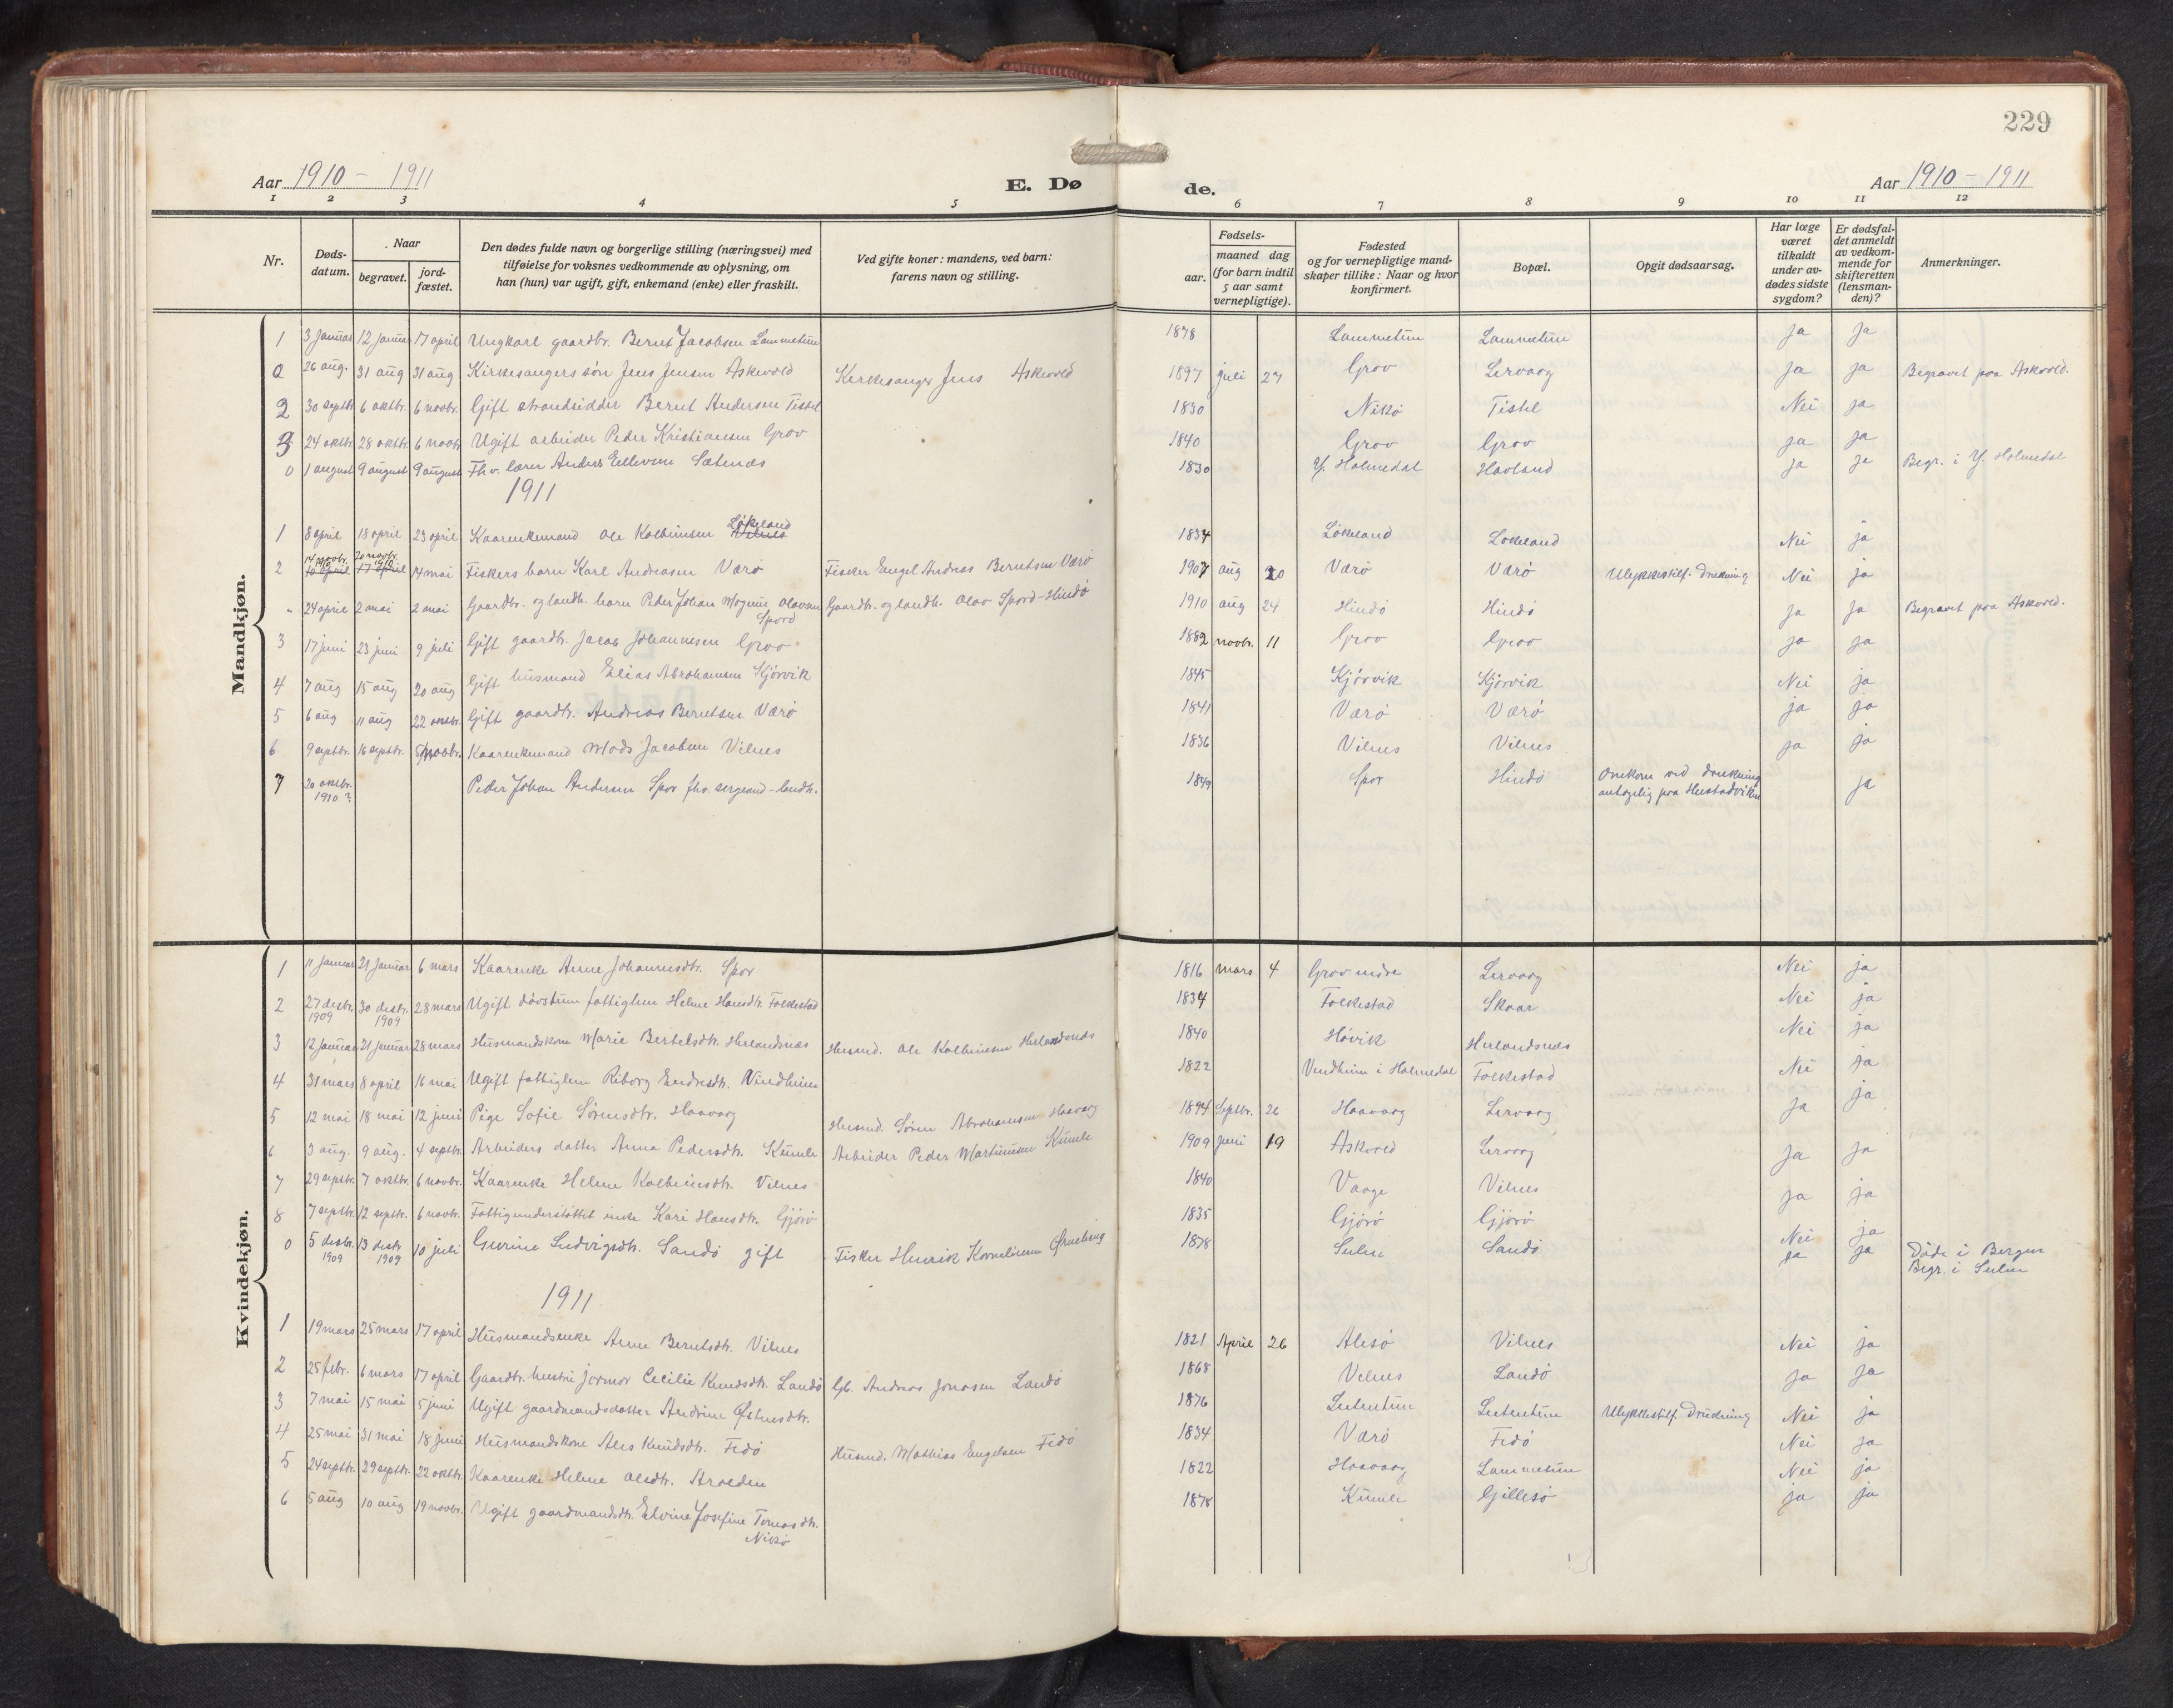 229
Aar 1910 - 1911
E. Dø
de.
Aar 1910 - 1911
1 2 3 4 5 6 7 8 9 10 11 12
Nr.
Døds-datum.
Naar
begravet.
jord-fæstet.
Den dødes fulde navn og borgerlige stilling (næringsvei) med
tilføielse for voksnes vedkommende av oplysning, om
han (hun) var ugift, gift, enkemand (enke) eller fraskilt.
Ved gifte koner: mandens, ved barn:
farens navn og stilling.
Fødsels-
aar.
maaned dag
(for barn indtil
5 aar samt
vernepligtige).
Fødested
og for vernepligtige mand-
skaper tillike: Naar og hvor
konfirmert.
Bopæl.
Opgit dødsaarsag.
Har læge
været
tilkaldt
under av-
dødes sidste
sygdom?
Er dødsfal-
det anmeldt
av vedkom-
mende for
skifteretten
(lensman-
den)?
Anmerkninger.
Mandkjøn.
1 3 januar 12 januar 17 april Ungkarl gaardbr. Bernt Jacobsen Lammetun 1878 Lammetun Lammetun ja ja
2 26 aug. 31 aug 31 aug Kirkesangers søn Jens Jensen Askevold Kirkesanger Jens Askevold 1897 juli 27 Grov Lervaag ja ja Begravet paa Askvold.
2 30 septbr 6 oktbr. 6 novbr. Gift strandsidder Bernt Andersen Tistel 1830 Nikø Tistel Nei ja
3 24 oktbr. 28 oktbr. 6 novbr. Ugift arbeider Peder Kristiansen Grov 1840 Grov Grov ja ja
0 1 august 9 august 9 august Fhv. lærer Anders Ellevsen Sætenes 1830 Y. Holmedal Havland ja ja Begr. i Y. Holmedal
1911
1 8 april 18 april 23 april Kaarenkemand Ole Kolbeinsen Vilnes Løkeland 1834 Løkeland Løkeland Nei ja
14 novbr. 1910 20 novbr. 1910
2 10 april 17 april 14 mai Fiskers barn Karl Andreasen Værø Fisker Engel Andreas Berntsen Værø 1907 aug 20 Værø Værø Ulykkestilf. Drukning Nei ja
" 24 april 2 mai 2 mai Gaardbr. og landh. barn Peder Johan Magnus Olavsen Spord Gaardbr. og landh. Olav Spord-Hindø 1910 aug 24 Hindø Hindø ja ja Begravet paa Askvold.
3 17 juni 23 juni 9 juli Gift gaardbr. Jacob Johannesen Grov 1882 novbr. 11 Grov Grov ja ja
4 7 aug 15 aug 20 aug Gift husmand Elias Abrahamsen Kjørvik 1845 Kjørvik Kjørvik Nei ja
5 6 aug 11 aug 22 oktbr. Gift gaardbr. Andreas Berntsen Værø 1841 Værø Værø ja ja
6 9 septbr. 16 septbr. 5 novbr. Kaarenkemand Mads Jacobsen Vilnes 1836 Vilnes Vilnes ja ja
7 20 oktbr. 1910? Peder Johan Andersen Spor fhv. sergeand - landh. 1849 Spor Hindø Omkom ved drukning
antagelig paa Hustadviken ja
Kvindekjøn.
1 11 januar 21 januar 6 mars Kaarenke Anne Johannesdtr. Spor 1816 mars 4 Grov indre Lervaag Nei ja
2 27 desbr. 1909 30 desbr. 1909 28 mars Ugift døvstum fattiglem Helene Hansdtr. Folkestad 1834 Folkestad Skaar Nei ja
3 12 januar 21 januar 28 mars Husmandskone Marie Bertelsdtr. Herlandsnæs Husmd. Ole Kolbeinsen Herlandsnæs 1840 Høvik Herlandsnæs Nei ja
4 31 mars 8 april 16 mai Ugift fattiglem Riborg Endresdtr. Vindheim 1822 Vindheim i Holmedal Folkestad Nei ja
5 12 mai 18 mai 12 juni Pige Sofie Sørensdtr. Haavaag Husmd. Søren Abrahamsen Haavaag 1894 Septbr. 26 Haavaag Lervaag ja ja
6 3 aug. 9 aug. 4 septbr. Arbeiders datter Anna Pedersdtr. Kumle Arbeider Peder Martinusen Kumle 1909 juni 19 Askvold Lervaag ja ja
7 29 septbr. 7 oktbr. 6 novbr. Kaarenke Helene Kolbeinsdtr. Vilnes 1840 Vaage Vilnes ja ja
8 7 septbr. 12 septbr. 6 novbr. Fattigunderstøttet enke Kari Hansdtr. Gjørø 1835 Gjørø Gjørø Nei ja
0 5 desbr. 1909 13 desbr 1909 10 juli Gurine Ludvigsdtr. Sandø gift Fisker Henrik Korneliusen 1878 Sulen Sandø ja ja Døde i Bergen
Begr. i Sulen
1911
1 19 mars 25 mars 17 april Husmandsenke Anne Berntsdtr. Vilnes 1821 April 26 Alesø Vilnes Nei ja
2 25 febr. 6 mars 17 april Gaardbr. hustru jormor Cecilie Knudsdtr. Landø Gb. Andreas Jonasen Landø 1868 Vilnes Landø ja ja
3 7 mai 15 mai 5 juni Ugift gaardmandsdatter Andrine Østensdtr. 1876 Lutentun Lutentun Ulykkestilf. Drukning Nei ja
4 25 mai 31 mai 18 juni Husmandskone Ales Knudsdtr. Fedø Husmd. Mathias Engelsen Fedø 1834 Værø Fedø Nei ja
5 24 septbr. 29 septbr. 22 oktbr. Kaarenke Helene Olsdtr. 1822 Haavaag Lammetun Nei ja
6 5 aug 10 aug 19 novbr. Ugift gaardmandsdtr. Elvine Josefine Tomasdtr. 1878 Kumle Gillesø ja ja
Nikø